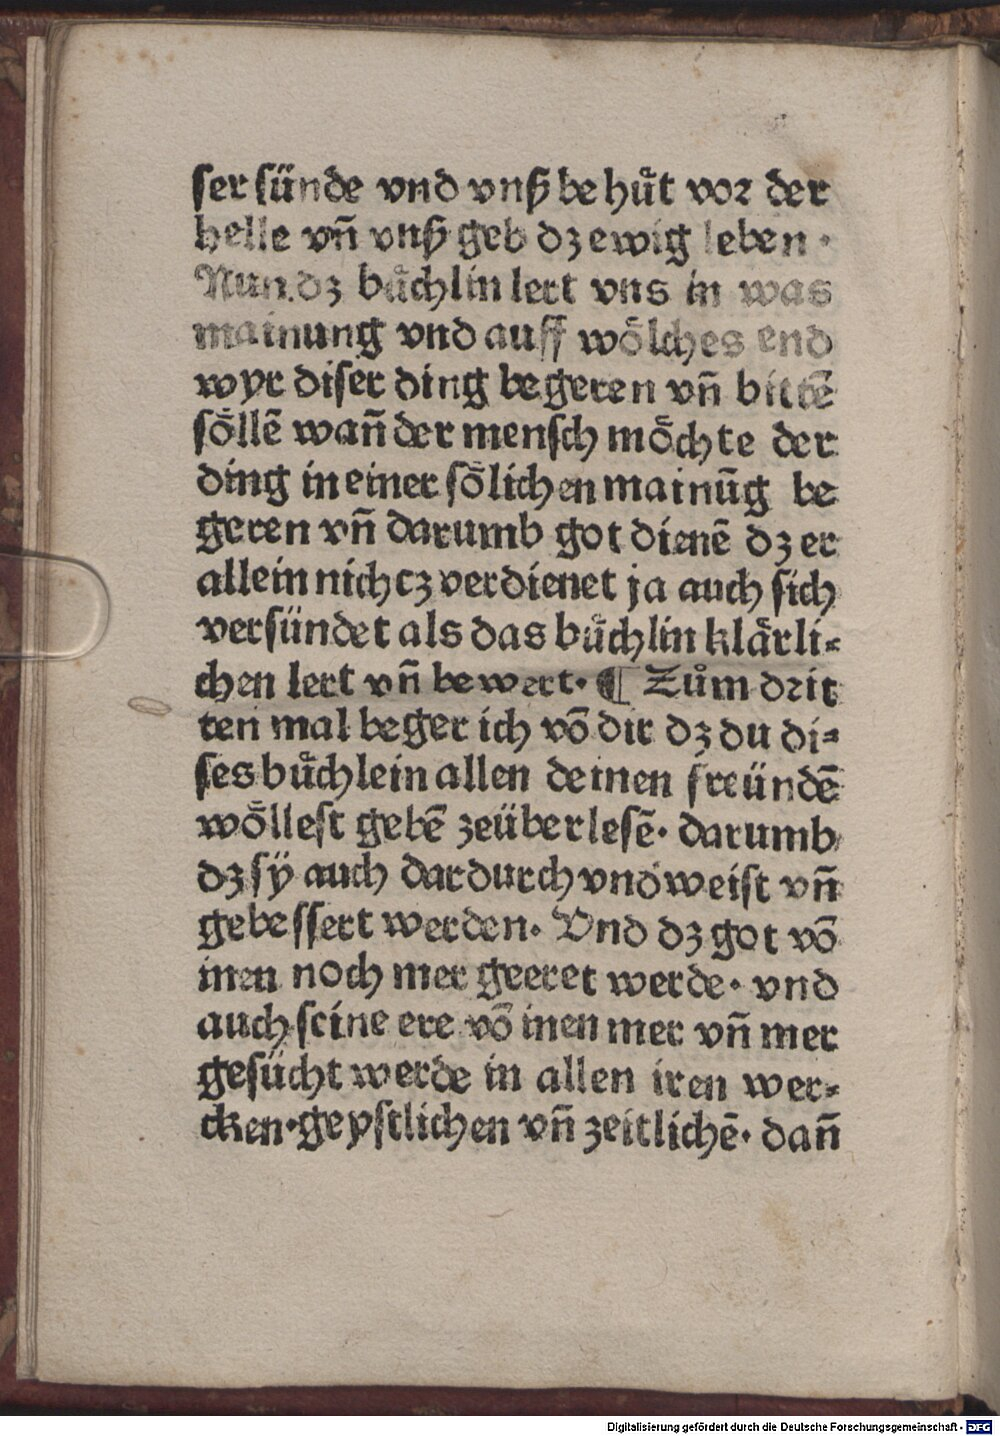 ser sünde vnd vnß be huͤt vor der
helle vn̄ vnß geb dz ewig leben ·
Nun dz buͤchlin lert vns in was
mainung vnd auff woͤlches end
wyr diser ding begeren vn̄ bittē
soͤllē wan̄ der mensch moͤchte der
ding in einer soͤlichen mainūg be
geren vn̄ darumb got dienē dz er
allein nichtz verdienet ja auch sich
versündet als das buͤchlin klaͤrli⸗
chen lert vn̄ bewert· ¶ Zuͦm drit
ten mal beger ich vō dir dz du di⸗
ses buͤchlein allen deinen freündē
woͤllest gebē zeüberlesē· darumb
dz sÿ auch dardurch vndweist vn̄
gebessert werden· Vnd dz got vō
inen noch mer geeret werde· vnd
auch seine ere vō inen mer vn̄ mer
gesücht werde in allen iren wer⸗
cken·geystlichen vn̄ zeitlichē· dan̄
Digitalisierung gefördert durch die Deutsche Forschungsgemeinschaft - DFG